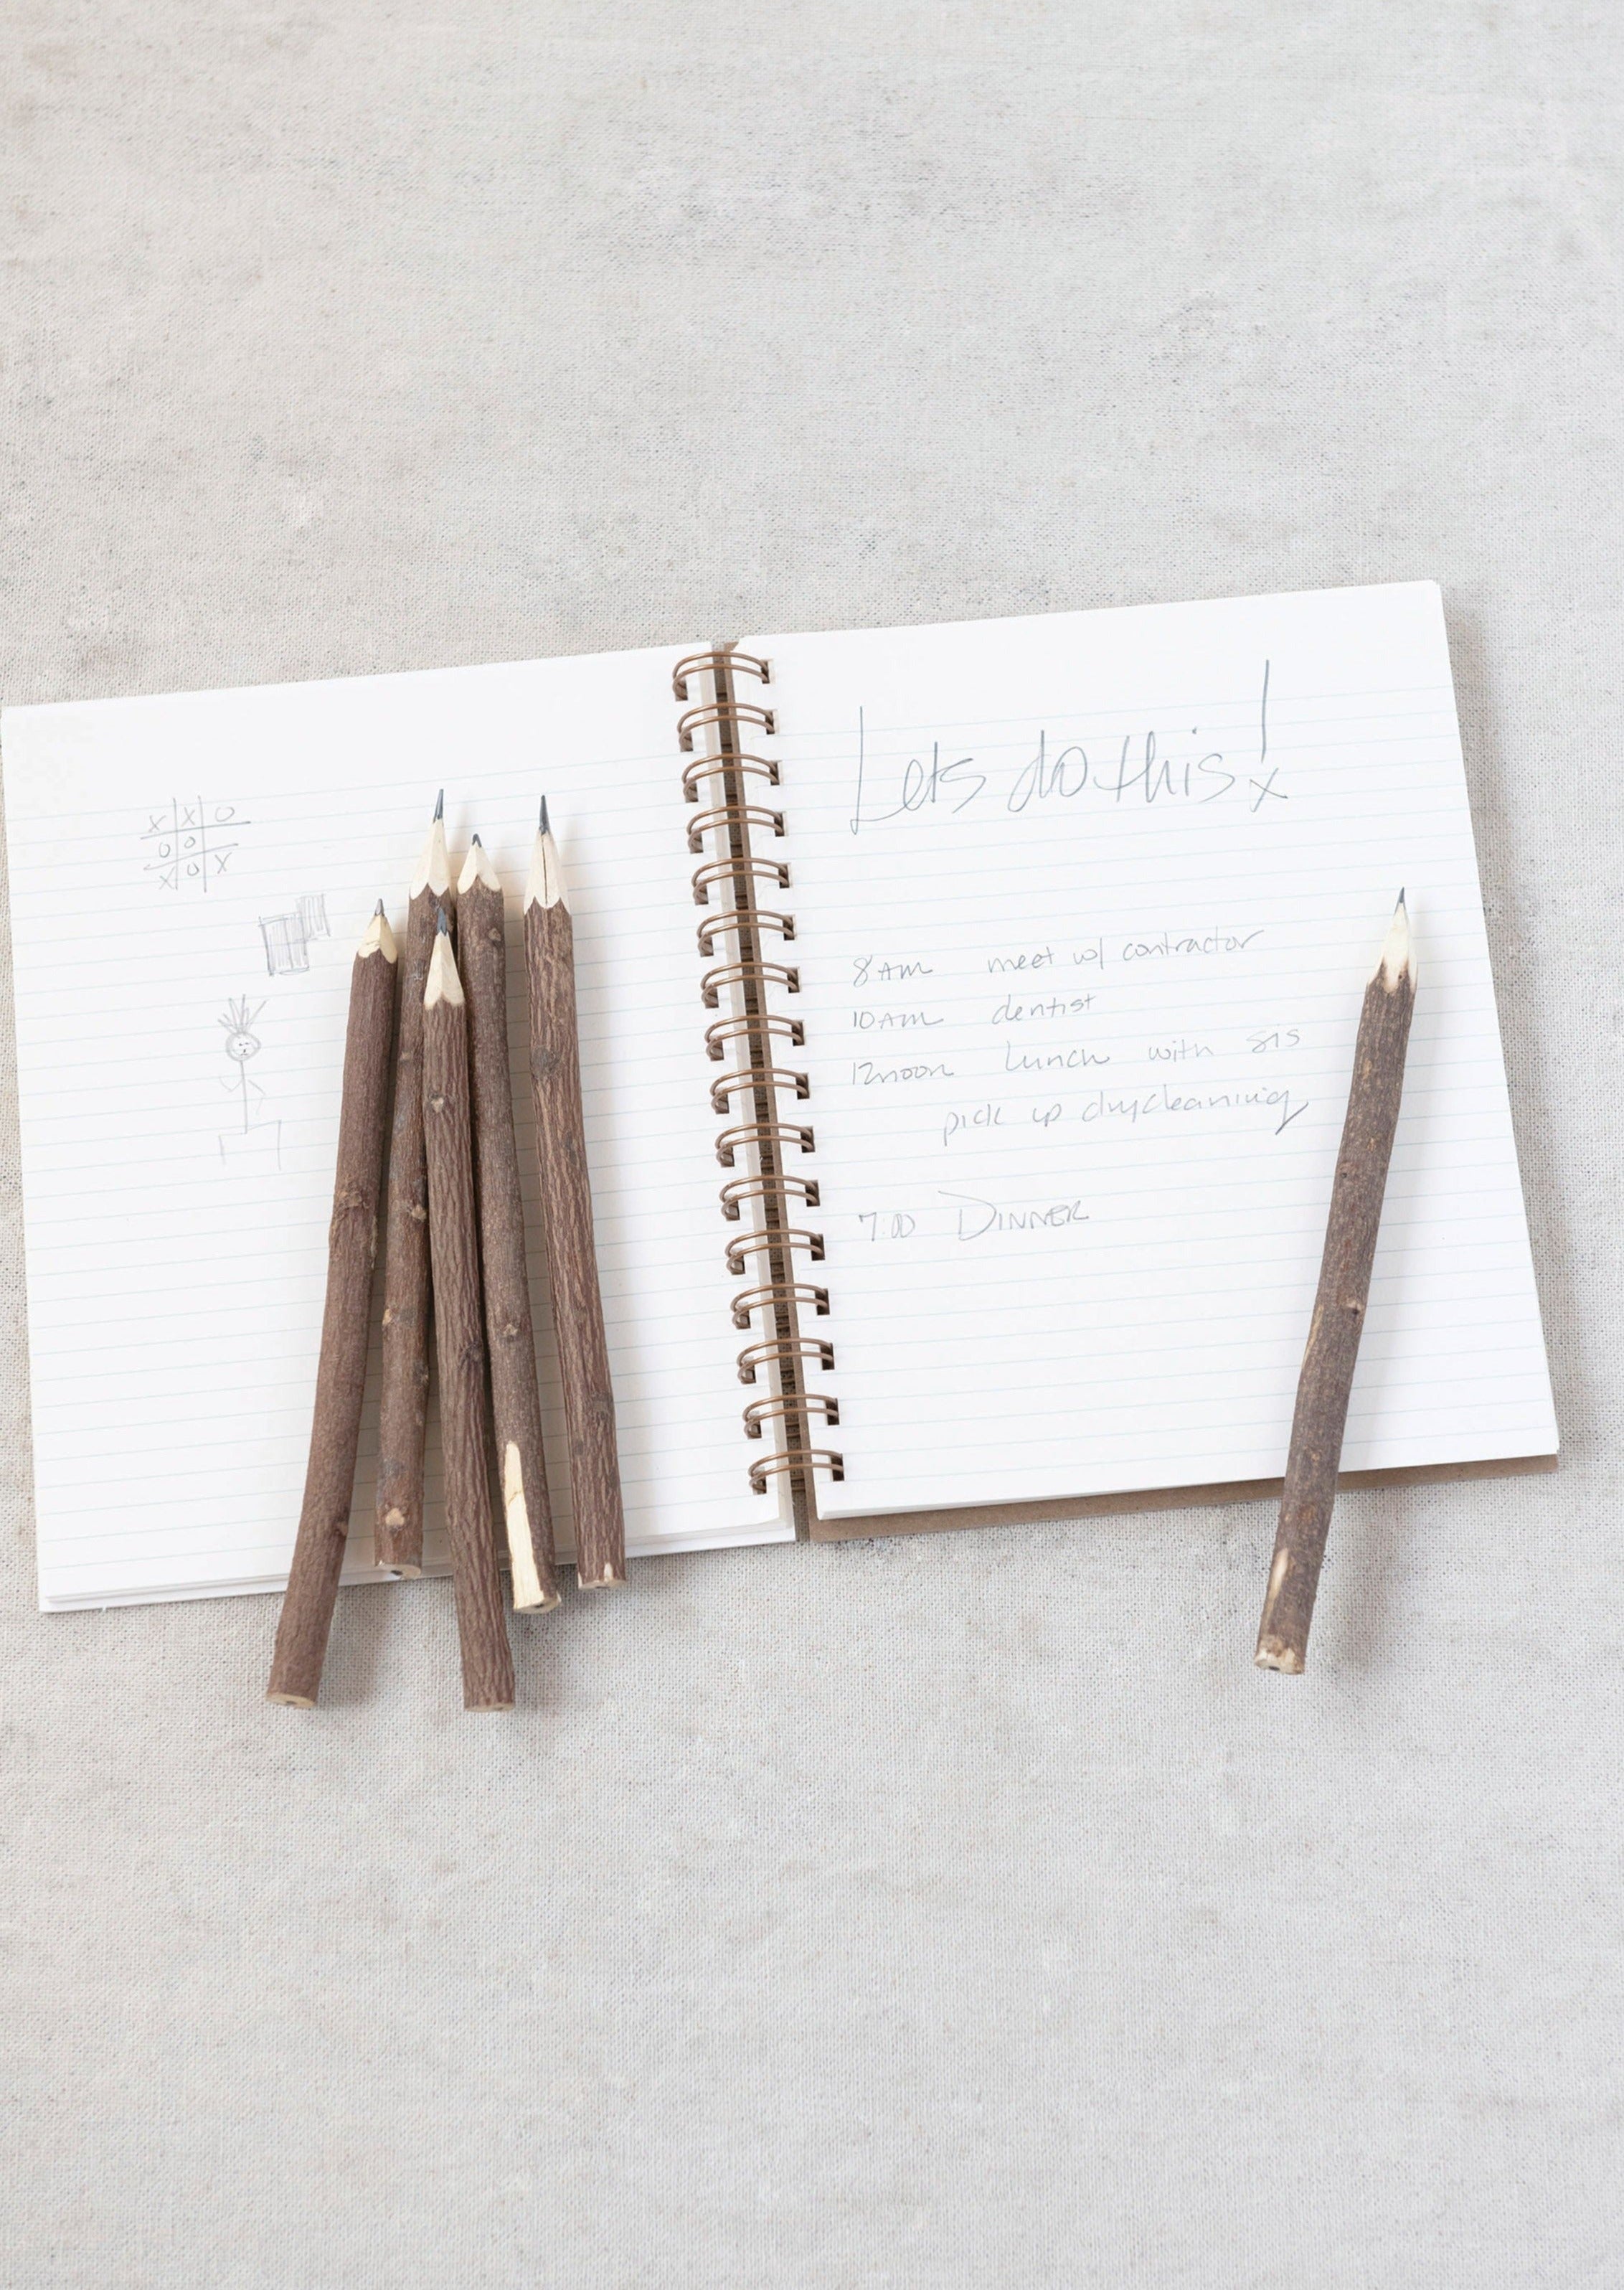 X X O
O O
X O X
Lets do this!
8 AM meet w/ contractor
10 AM dentist
12 noon Lunch with sis
pick up drycleaning
7:00 DINNER